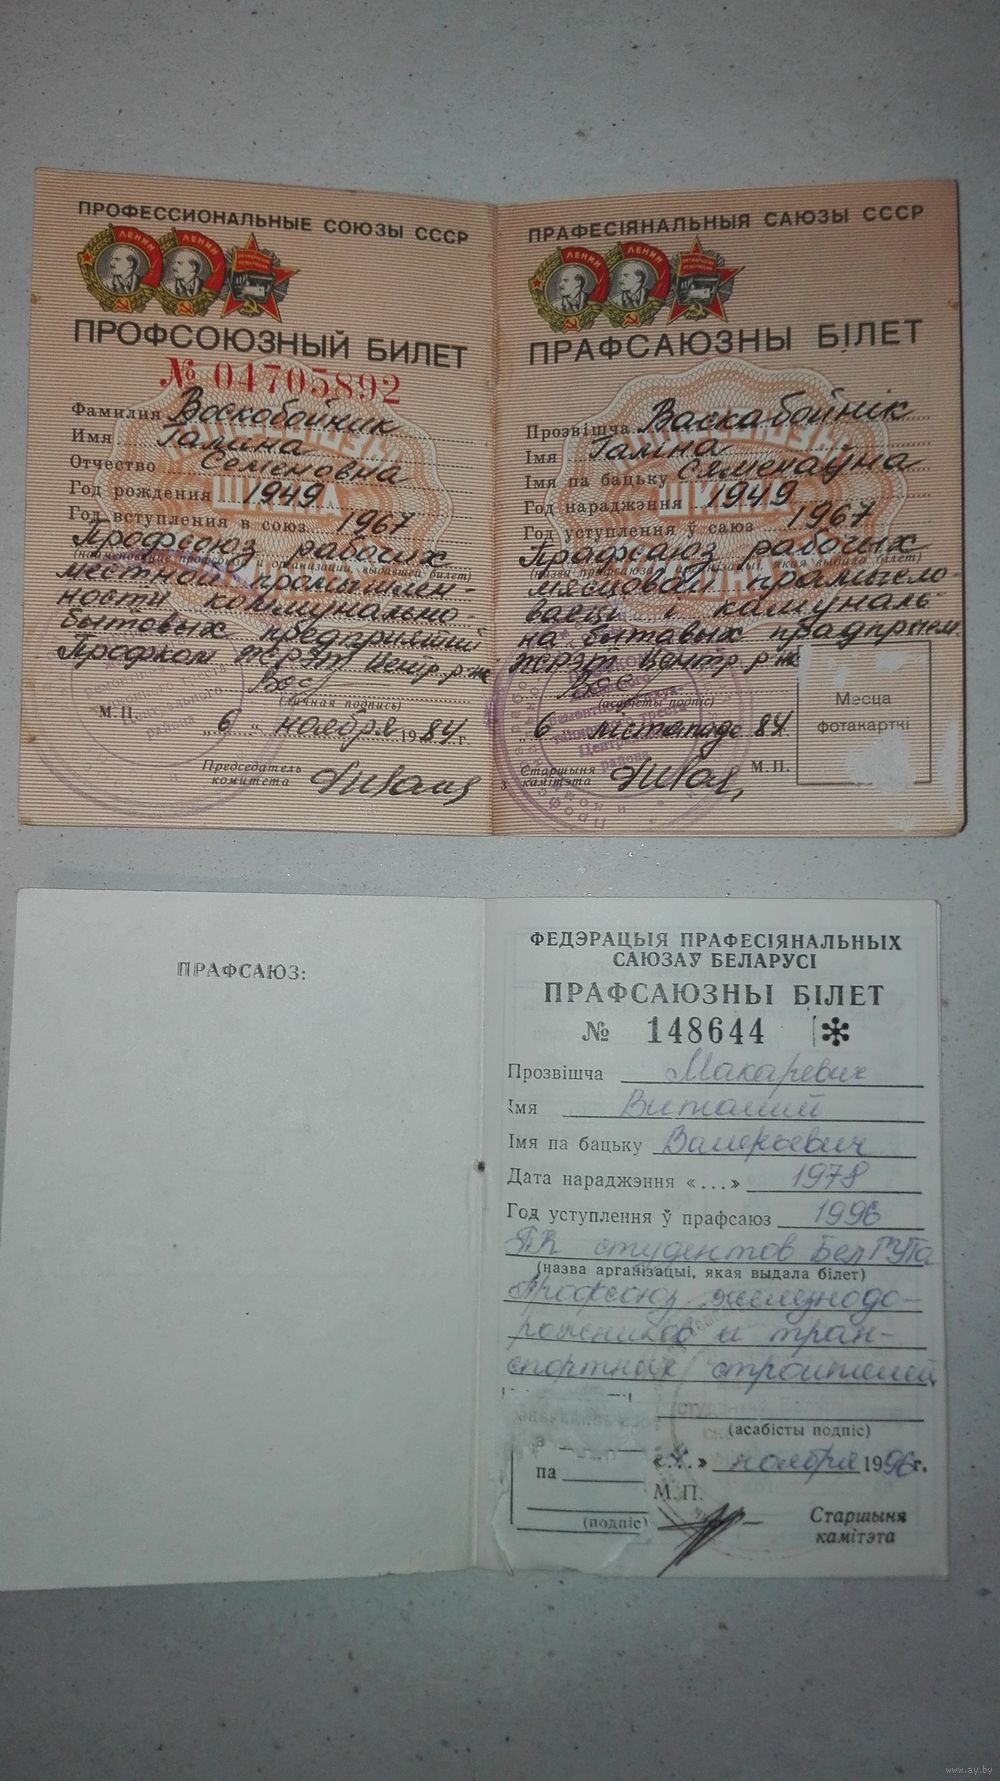 ПРОФЕССИОНАЛЬНЫЕ СОЮЗЫ СССР
ЛЕНИН ЛЕНИН
ПРОФСОЮЗНЫЙ БИЛЕТ
№ 04705892
Фамилия Воскобойник
Имя Галина
Отчество Семеновна
Год рождения 1949
Год вступления в союз 1967
Профсоюз рабочих
(наименование профсоюза и организации, выдавшей билет)
местной промышлен-
ности коммунально-
бытовых предприятий
Профком ЖРЭТ Центр. р-на
Вос
(личная подпись)
М.П.
„6“ ноября 1984 г.
Председатель
комитета
ПРАФЕСІЯНАЛЬНЫЯ САЮЗЫ СССР
ЛЕНИН ЛЕНИН
ПРАФСАЮЗНЫ БІЛЕТ
Прозвішча Васкабойнік
Імя Галіна
Імя па бацьку Сямёнаўна
Год нараджэння 1949
Год уступлення ў саюз 1967
Прафсаюз рабочых
(назва прафсаюза і арганізацыі, якая выдала білет)
мясцовай прамысло-
васці і камуналь-
на бытавых прадпрыем.
ЖРЭТ Центр. р-на
Вос
(асабісты подпіс)
„6 лістапада 84
Старшыня
камітэта
М.П.
Месца
фотакарткі
ПРАФСАЮЗ:
ФЕДЭРАЦЫЯ ПРАФЕСІЯНАЛЬНЫХ
САЮЗАЎ БЕЛАРУСІ
ПРАФСАЮЗНЫ БІЛЕТ
№ 148644
Прозвішча Макаревич
Імя Виталий
Імя па бацьку Валерьевич
Дата нараджэння «...» 1978
Год уступлення ў прафсаюз 1996
ПК студентов БелГУТа
(назва арганізацыі, якая выдала білет)
Профсоюз железнодо-
рожников и тран-
спортных строителей
(асабісты подпіс)
па
ноября 1996г.
М.П.
(подпіс)
Старшыня
камітэта
www.ay.by